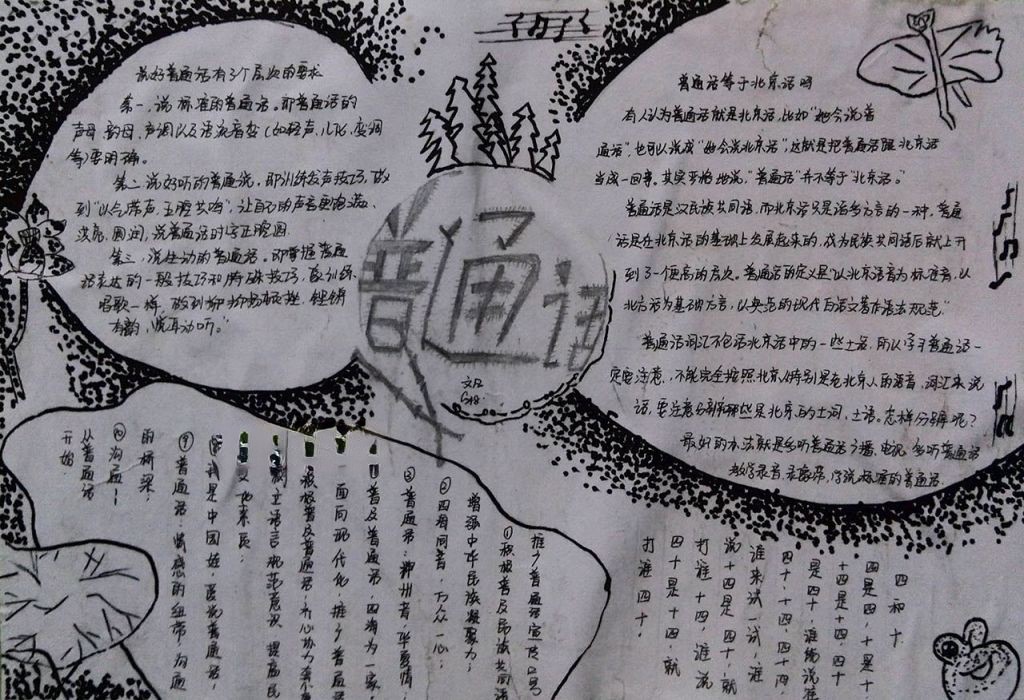 说好普通话有3个层次的要求
第一,说标准的普通话。即普通话的
声母、韵母,声调以及语流音变(如轻声,儿化,变调
等)要明确。
第二说好听的普通说,即训练发声技巧,做
到"以气带声,五腔共鸣",让自己的声音更饱满、
圆润,说普通话时字正腔圆
第三,说生动的普通话。即掌握普通
话表达的一般技巧和特殊技巧,
唱歌一样,
有韵,动听。"
普通话
普通话等于北京话吗
有人认为普通话就是北京话,比如"她会说普
通话",也可以说成"她会说北京话",这就是把普通话跟北京话
当成一回事。其实严格地说,"普通话"并不等于"北京话。"
普通话是汉民族共同语,而北京话只是诸多方言的一种,普通
话是在北京话的基础上发展起来的,成为民族共同语后就上升
到了一个更高的层次。普通话的定义是"以北京语音为标准音,以
北方话为基础方言,以典范的现代白话文著作语法规范"
普通话词汇不包话北京话中的一些土话,所以学习普通话一
定要注意,不能完全按照北京人特别是老北京人的语音,词汇来说
话,要注意分辨哪些是北京的土词,土话。怎样分辨呢?
最好的办法就是多听普通话广播、电视,多听普通话
教学录音,标准的普通话.
推广普通话宣传口号
①积极普及民族共同语
增强中华民族凝聚力;
②四海同音,万众一心;
③普通话:神州音,华夏情,
普及普通话,四海为一家
面向现代化,推广普通话
积极普及普通话,齐心协力
树立语言规范意识 提高民
又地来自;
我是中国娃,爱说普通话,
⑨普通话:情感的纽带,沟通
的桥梁;
⑩沟通!
从普通话
开始
四和十
四是四,十是十
十四是十四,四十
是四十,谁能说准
四十,十四,四十四,
谁来试一试,谁
说十四是四十,就
打谁十四,谁说
四十是十四,就
打谁四十.